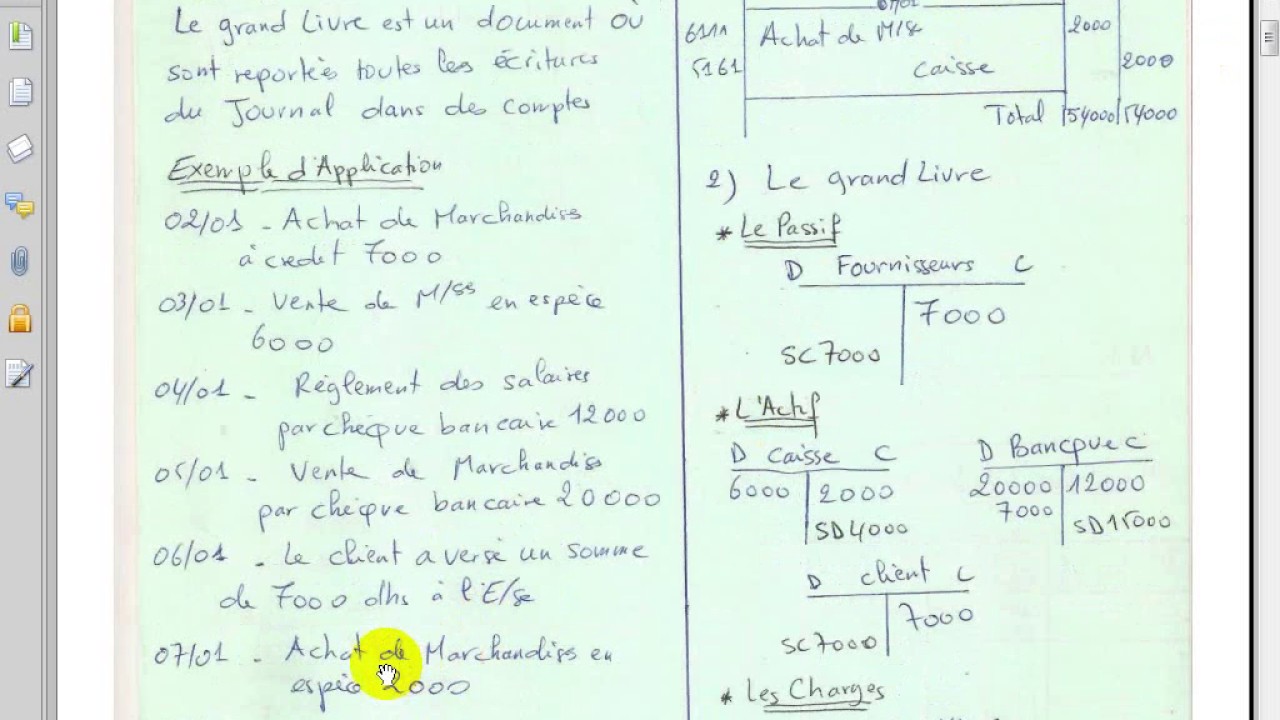 Le grand Livre est un document où
sont reportés toutes les écritures
du Journal dans des comptes
Exemple d'Application
02/01 - Achat de Marchandiss
à credet 7000
03/01 - Vente de M/ses en espèce
6000
04/01 - Règlement des salaires
par chèque bancaire 12000
05/01 - Vente de Marchandiss
par chèque bancaire 20000
06/01 - Le client a versé un somme
de 7000 dhs à l'E/se
07/01 - Achat de Marchandiss en
espèce 2000
6111 Achat de M/se 2000
5161 caisse 2000
Total 54000 54000
2) Le grand Livre
* Le Passif
D Fournisseurs C
7000
SC 7000
* L'Actif
D caisse C
6000 2000
SD 4000
D Banque C
20000 12000
7000
SD 15000
D client C
7000
SC 7000
* Les Charges